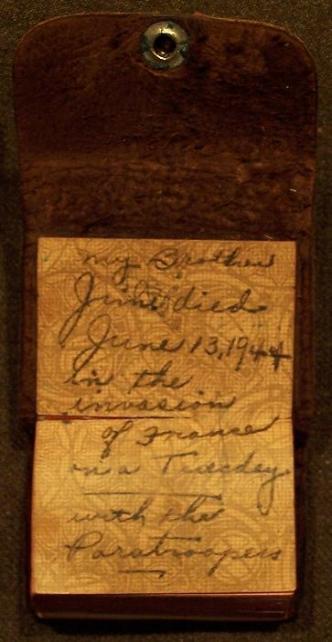 my Brother
Jim died
June 13, 1944
in the
invasion
of France
on a Tuesday
with the
Paratroopers